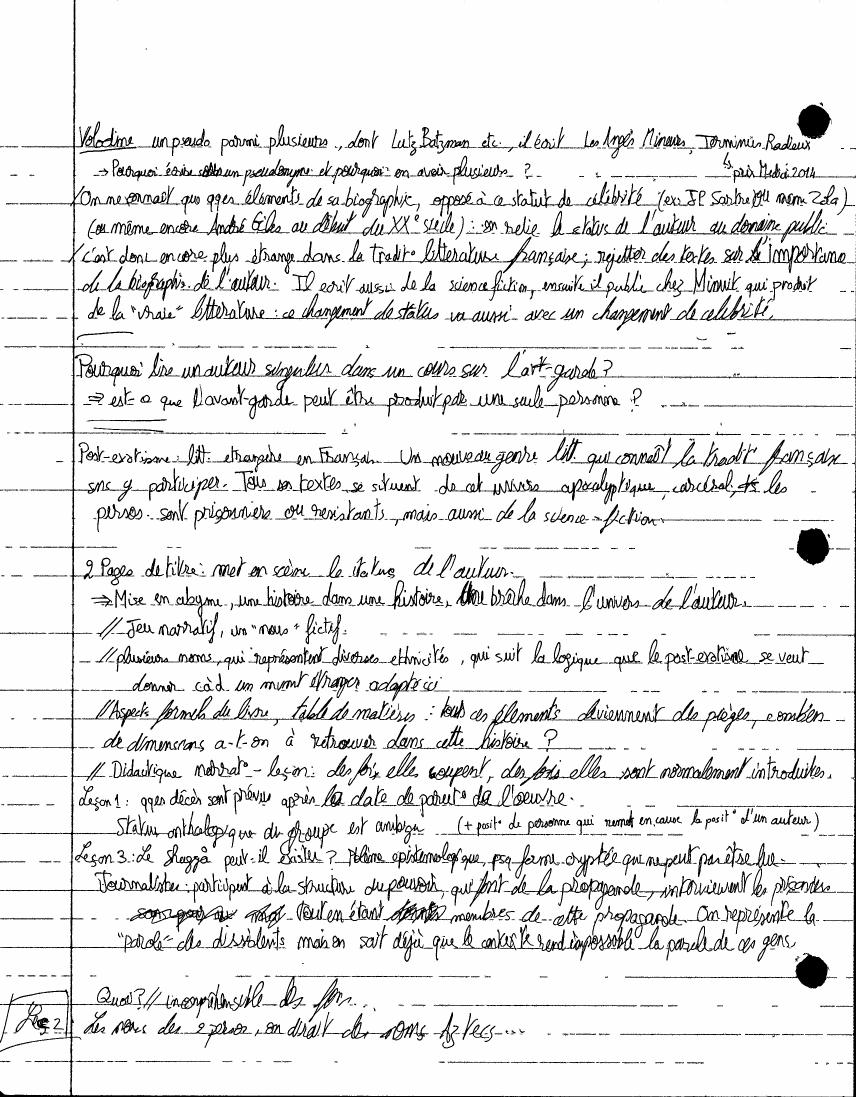 Volodine un pseudo parmi plusieurs, dont Lutz Batzman etc., il écrit Les Anges Mineurs, Terminus Radieux
→ Pourquoi écrire sous un pseudonyme et pourquoi en avoir plusieurs ?
↳ prix Medici 2014
On ne connaet que qqes éléments de sa biographie, opposé à ce statut de célébrité (ex: JP Sartre, ou meme Zola)
(ou même encore André au début du XXe siecle) : on relie le status de l'auteur au domaine public
c'est donc encore plus étrange dans la tradit° litterature française ; rejetter des textes sur l'importance
de la biographie de l'auteur. Il ecrit aussi de la science fiction, ensuite il public chez Minuit qui produit
de la "vraie" litterature : ce changement de status va aussi avec un changement de celebrité.
Pourquoi lire un auteur singulier dans un cours sur l'avt-garde ?
⇒ est-ce que l'avant-garde peut être produit par une seule personne ?
Post-exotisme : litt. etrangère en Français. Un nouveau genre litt. qui connaît la tradit° française
sns y participer. Tous ses textes se situent de cet univers apocalyptique, carcéral, les
persos. sont prisonniere ou resistants, mais aussi de la science-fiction.
2 Pages de titre : met en scène le status de l'auteur.
⇒ Mise en abyme, une histoire dans une histoire, Une brèche dans l'univers de l'auteur.
// Jeu narratif, un "nous" fictif.
// plusieurs noms, qui représentent diverses ethnicités, qui suit la logique que le post-exotisme se veut
donner càd un mvmt étranger adapté ici
// Aspects formels du livre, table de matières : tous ces élements deviennent des pièges, combien
de dimensions a-t-on à retrouver dans cette histoire ?
// Didactique narrat° - leçon : des fois elles coupent, des fois elles sont normalement introduites.
Leçon 1 : qqes décès sont prévus après la date de parut° de l'oeuvre.
Status onthologique du groupe est ambigu (+ posit° de personne qui remet en cause la posit° d'un auteur)
Leçon 3 : Le Shaggå peut-il exister ? Pblème epistemologique, psq forme cryptée qui ne peut pas être lue.
Journalistes : participent à la structure du pouvoir, qui font de la propagande, interviewent les prisonniers
tout en étant membres de cette propagande. On représente la
"parole" des dissidents mais on sait déjà que le contexte rend impossible la parole de ces gens.
Quoi? // incompréhensible des fois...
Leç 2 Les noms des 2 persos, on dirait des noms Aztecs...